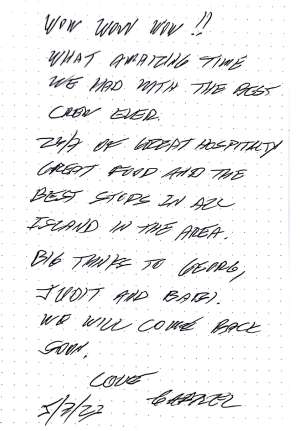 WOW WOW WOW !!
WHAT AMAIZING TIME
WE HAD WITH THE BEST
CREW EVER.
24/7 OF GREAT HOSPITALITY
GREAT FOOD AND THE
BEST STOPS IN ALL
ISLAND IN THE AREA.
BIG THNKS TO GEORG,
JUDIT AND
WE WILL COME BACK
SOON.
LOVE
5/7/22